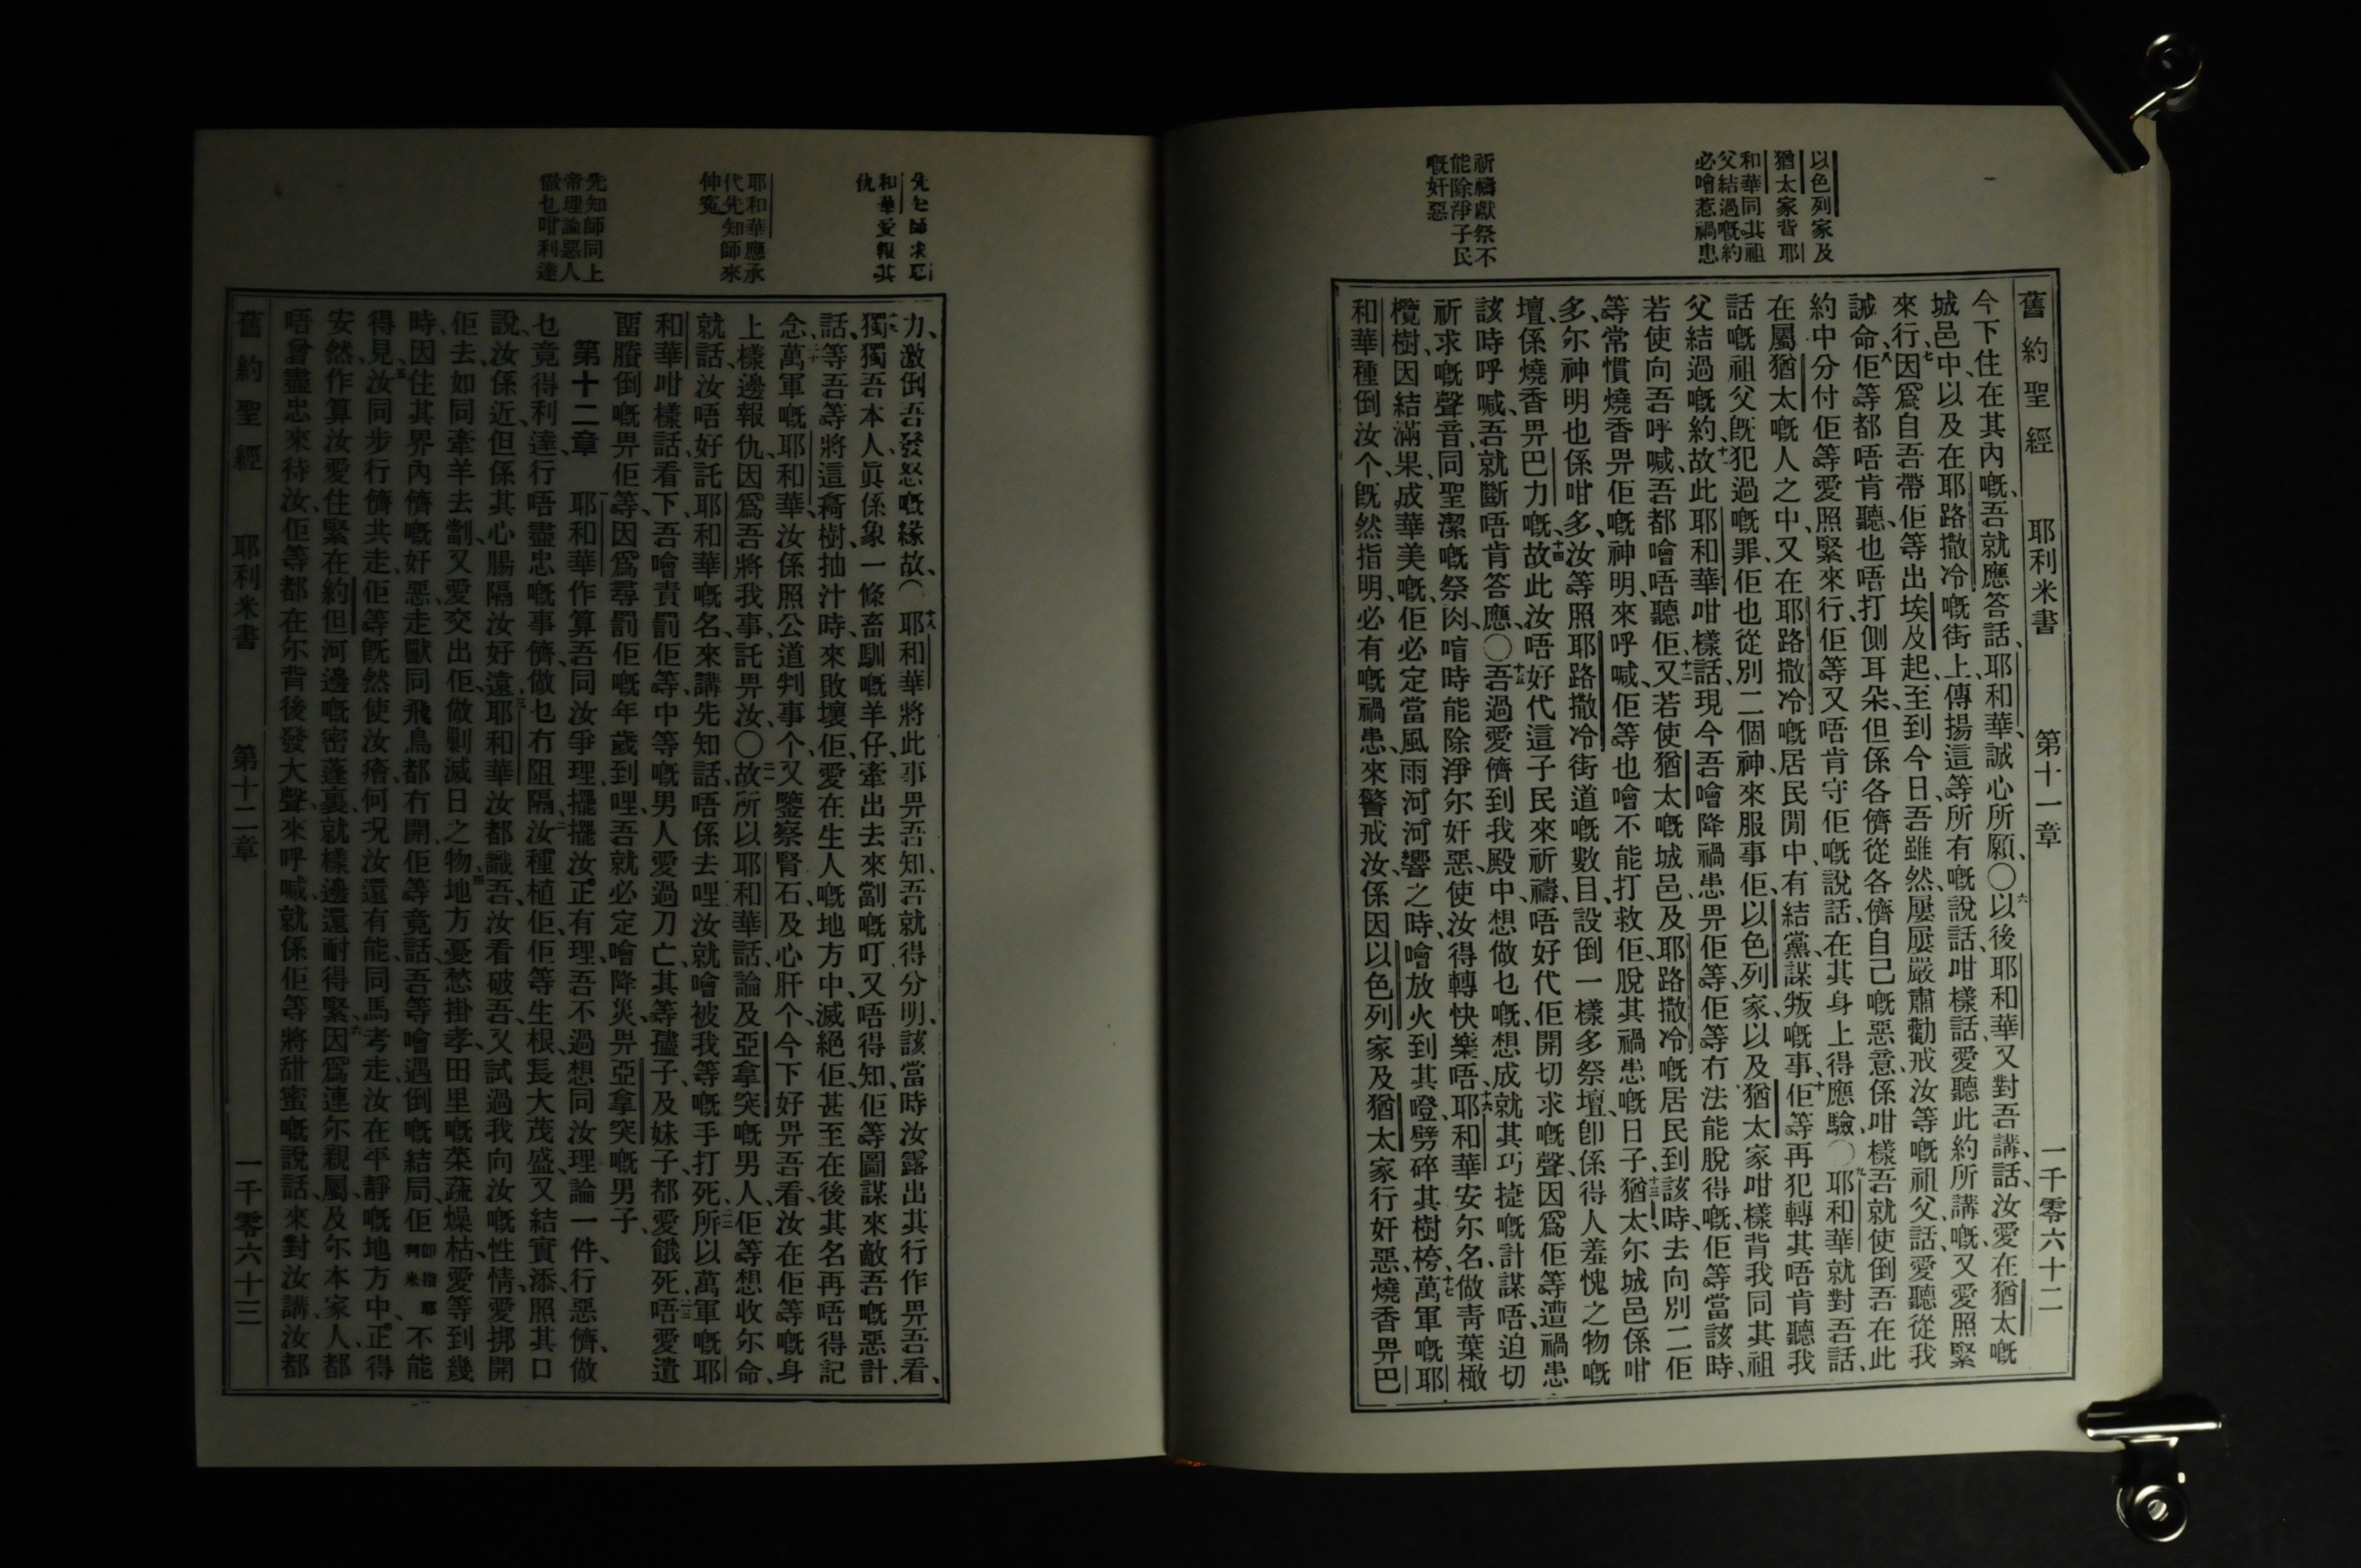 以色列家及
猶太家背耶
和華同其祖
父結過嘅約
必噲惹禍患
祈禱獻祭不
能除淨子民
嘅奸惡
舊約聖經 耶利米書 第十一章 一千零六十二
今下住在其內嘅、吾就應答話、耶和華、誠心所願、〇六以後、耶和華又對吾講、話、汝愛在猶太嘅
城邑中、以及在耶路撒冷嘅街上、傳揚這等所有嘅說話、咁樣話、愛聽此約所講嘅、又愛照緊
來行、七因爲自吾帶佢等出埃及起、至到今日、吾雖然屢屢嚴肅勸戒汝等嘅祖父、話、愛聽從我
誡命、八佢等都唔肯聽、也唔打側耳朵、但係各儕從各儕自己嘅惡意、係咁樣吾就使倒吾在此
約中分付佢等愛照緊來行、佢等又唔肯守佢嘅說話、在其身上得應驗、〇九耶和華就對吾話、
在屬猶太嘅人之中、又在耶路撒冷嘅居民閒中、有結黨謀叛嘅事、十佢等再犯轉其唔肯聽我
話嘅祖父旣犯過嘅罪、佢也從別二個神、來服事佢、以色列家、以及猶太家咁樣背我同其祖
父結過嘅約、十一故此耶和華咁樣話、現今吾噲降禍患畀佢等、佢等冇法能脫得嘅、佢等當該時、
若使向吾呼喊、吾都噲唔聽佢、十二又若使猶太嘅城邑、及耶路撒冷嘅居民、到該時、去向別二佢
等常慣燒香畀佢嘅神明、來呼喊、佢等也噲不能打救佢、脫其禍患嘅日子、十三猶太、尔城邑係咁
多、尔神明也係咁多、汝等照耶路撒冷街道嘅數目、設倒一樣多祭壇、卽係得人羞愧之物嘅
壇、係燒香畀巴力嘅、十四故此汝唔好代這子民來祈禱、唔好代佢開切求嘅聲、因爲佢等遭禍患
該時呼喊、吾就斷唔肯答應、〇十五吾過愛儕到我殿中、想做乜嘅、想成就其巧㨗嘅計謀唔、迫切
祈求嘅聲音、同聖潔嘅祭肉、唷時能除淨尔奸惡、使汝得轉快樂唔、十六耶和華安尔名、做靑葉橄
欖樹、因結滿果、成華美嘅、佢必定當風雨河河響之時、噲放火到其噔、劈碎其樹桍、十七萬軍嘅耶
和華種倒汝个、旣然指明、必有嘅禍患、來警戒汝、係因以色列家及猶太家行奸惡、燒香畀巴
先知師求耶
和華愛報其
仇
耶和華應承
代先知師來
伸寃
先知師同上
帝理論惡人
做乜咁利達
力、激倒吾發怒嘅緣故、〇十八耶和華將此事畀吾知、吾就得分明、該當時汝露出其行作畀吾看、
十九獨獨吾本人、眞係象一條畜馴嘅羊仔、牽出去來劏嘅、叮又唔得知、佢等圖謀來敵吾嘅惡計、
話、等吾等將這樹抽汁時、來敗壞佢、愛在生人嘅地方中、滅絕佢、甚至在後其名再唔得記
念、二十萬軍嘅耶和華、汝係照公道判事个、又鑒察腎石、及心肝个、今下好畀吾看、汝在佢等嘅身
上樣邊報仇、因爲吾將我事、託畀汝、〇二一故所以耶和華話、論及亞拿突嘅男人、佢等想收尔命、
就話、汝唔好託耶和華嘅名、來講先知話、唔係去哩、汝就噲被我等嘅手打死、二二所以萬軍嘅耶
和華咁樣話、看下、吾噲責罰佢等、中等嘅男人愛過刀亡、其等孻子、及妹子都愛餓死、二三唔愛遺
畱賸倒嘅畀佢等、因爲尋罰佢嘅年歲到哩、吾就必定噲降災、畀亞拿突嘅男子、
第十二章 耶和華、作算吾同汝爭理、擺擺汝正有理、吾不過想同汝理論一件、行惡儕、做
乜竟得利達、行唔盡忠嘅事儕、做乜冇阻隔、二汝種植佢、佢等生根、長大茂盛、又結實添、照其口
說、汝係近、但係其心腸隔汝好遠、三耶和華汝都識吾、汝看破吾、又試過我向汝嘅性情、愛挷開
佢去、如同牽羊去劏、又愛交出佢、做剿滅日之物、四地方憂愁掛孝、田里嘅菜蔬燥枯、愛等到幾
時、因住其界內儕嘅奸惡、走獸同飛鳥都冇開、佢等竟話、吾等噲遇倒嘅結局、佢卽指耶利米不能
得見、五汝同步行儕共走、佢等旣然使汝瘡、何况汝還有能同馬考走、汝在平靜嘅地方中、正得
安然、作算汝愛住緊在約但河邊嘅密蓬裏、就樣邊還耐得緊、六因爲連尔親屬、及尔本家人、都
唔曾盡忠來待汝、佢等都在尔背後發大聲來呼喊、就係佢等將甜蜜嘅說話、來對汝講、汝都
舊約聖經 耶利米書 第十二章 一千零六十三